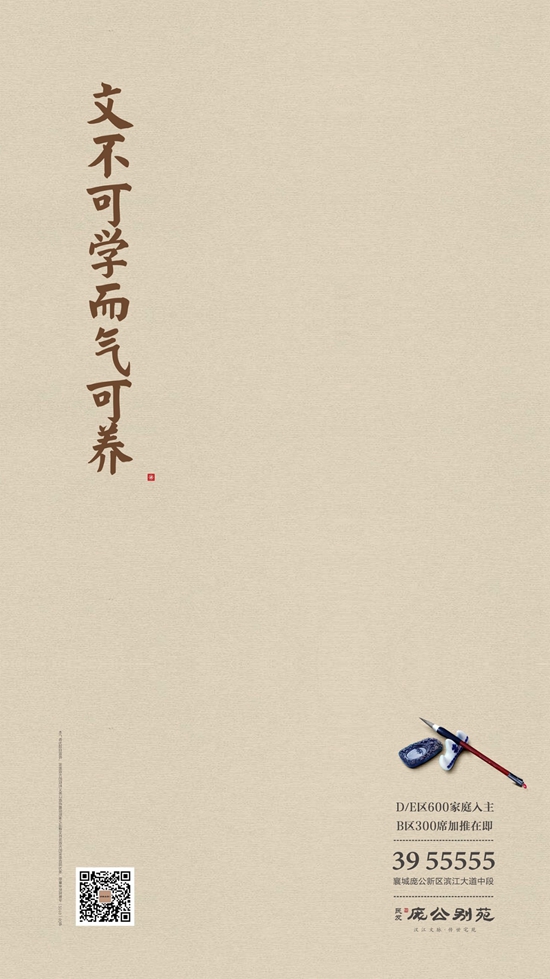 文不可学而气可养
D/E区600家庭入主
B区300席加推在即
39 55555
襄城庞公新区滨江大道中段
民发 庞公别苑